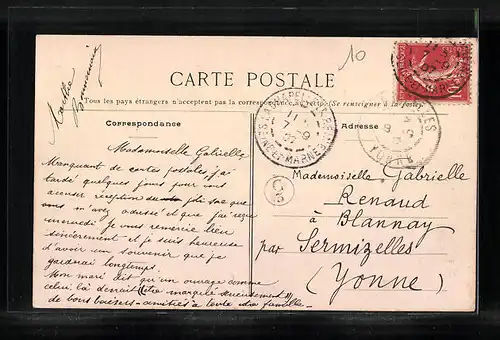 Marthe
10
CARTE POSTALE
Tous les pays étrangers n'acceptent pas la correspondance au recto (Se renseigner à la poste)
Correspondance
Adresse
Mademoiselle Gabrielle
Manquant de cartes postales, j'ai
tardé quelques jours pour vous
accuser réception de joli sac que
vous m'avez adressé et que j'ai reçu
mercredi Je vous remercie bien
sincèrement et je suis heureuse
d'avoir un souvenir que je
garderai longtemps.
Mon mari dit qu'un ouvrage comme
celui là devrait être
de bons baisers amitiés à toute la famille
Mademoiselle Gabrielle
Renaud
à Blannay
par Sermizelles
(Yonne)
SEINE-ET-MARNE
YONNE